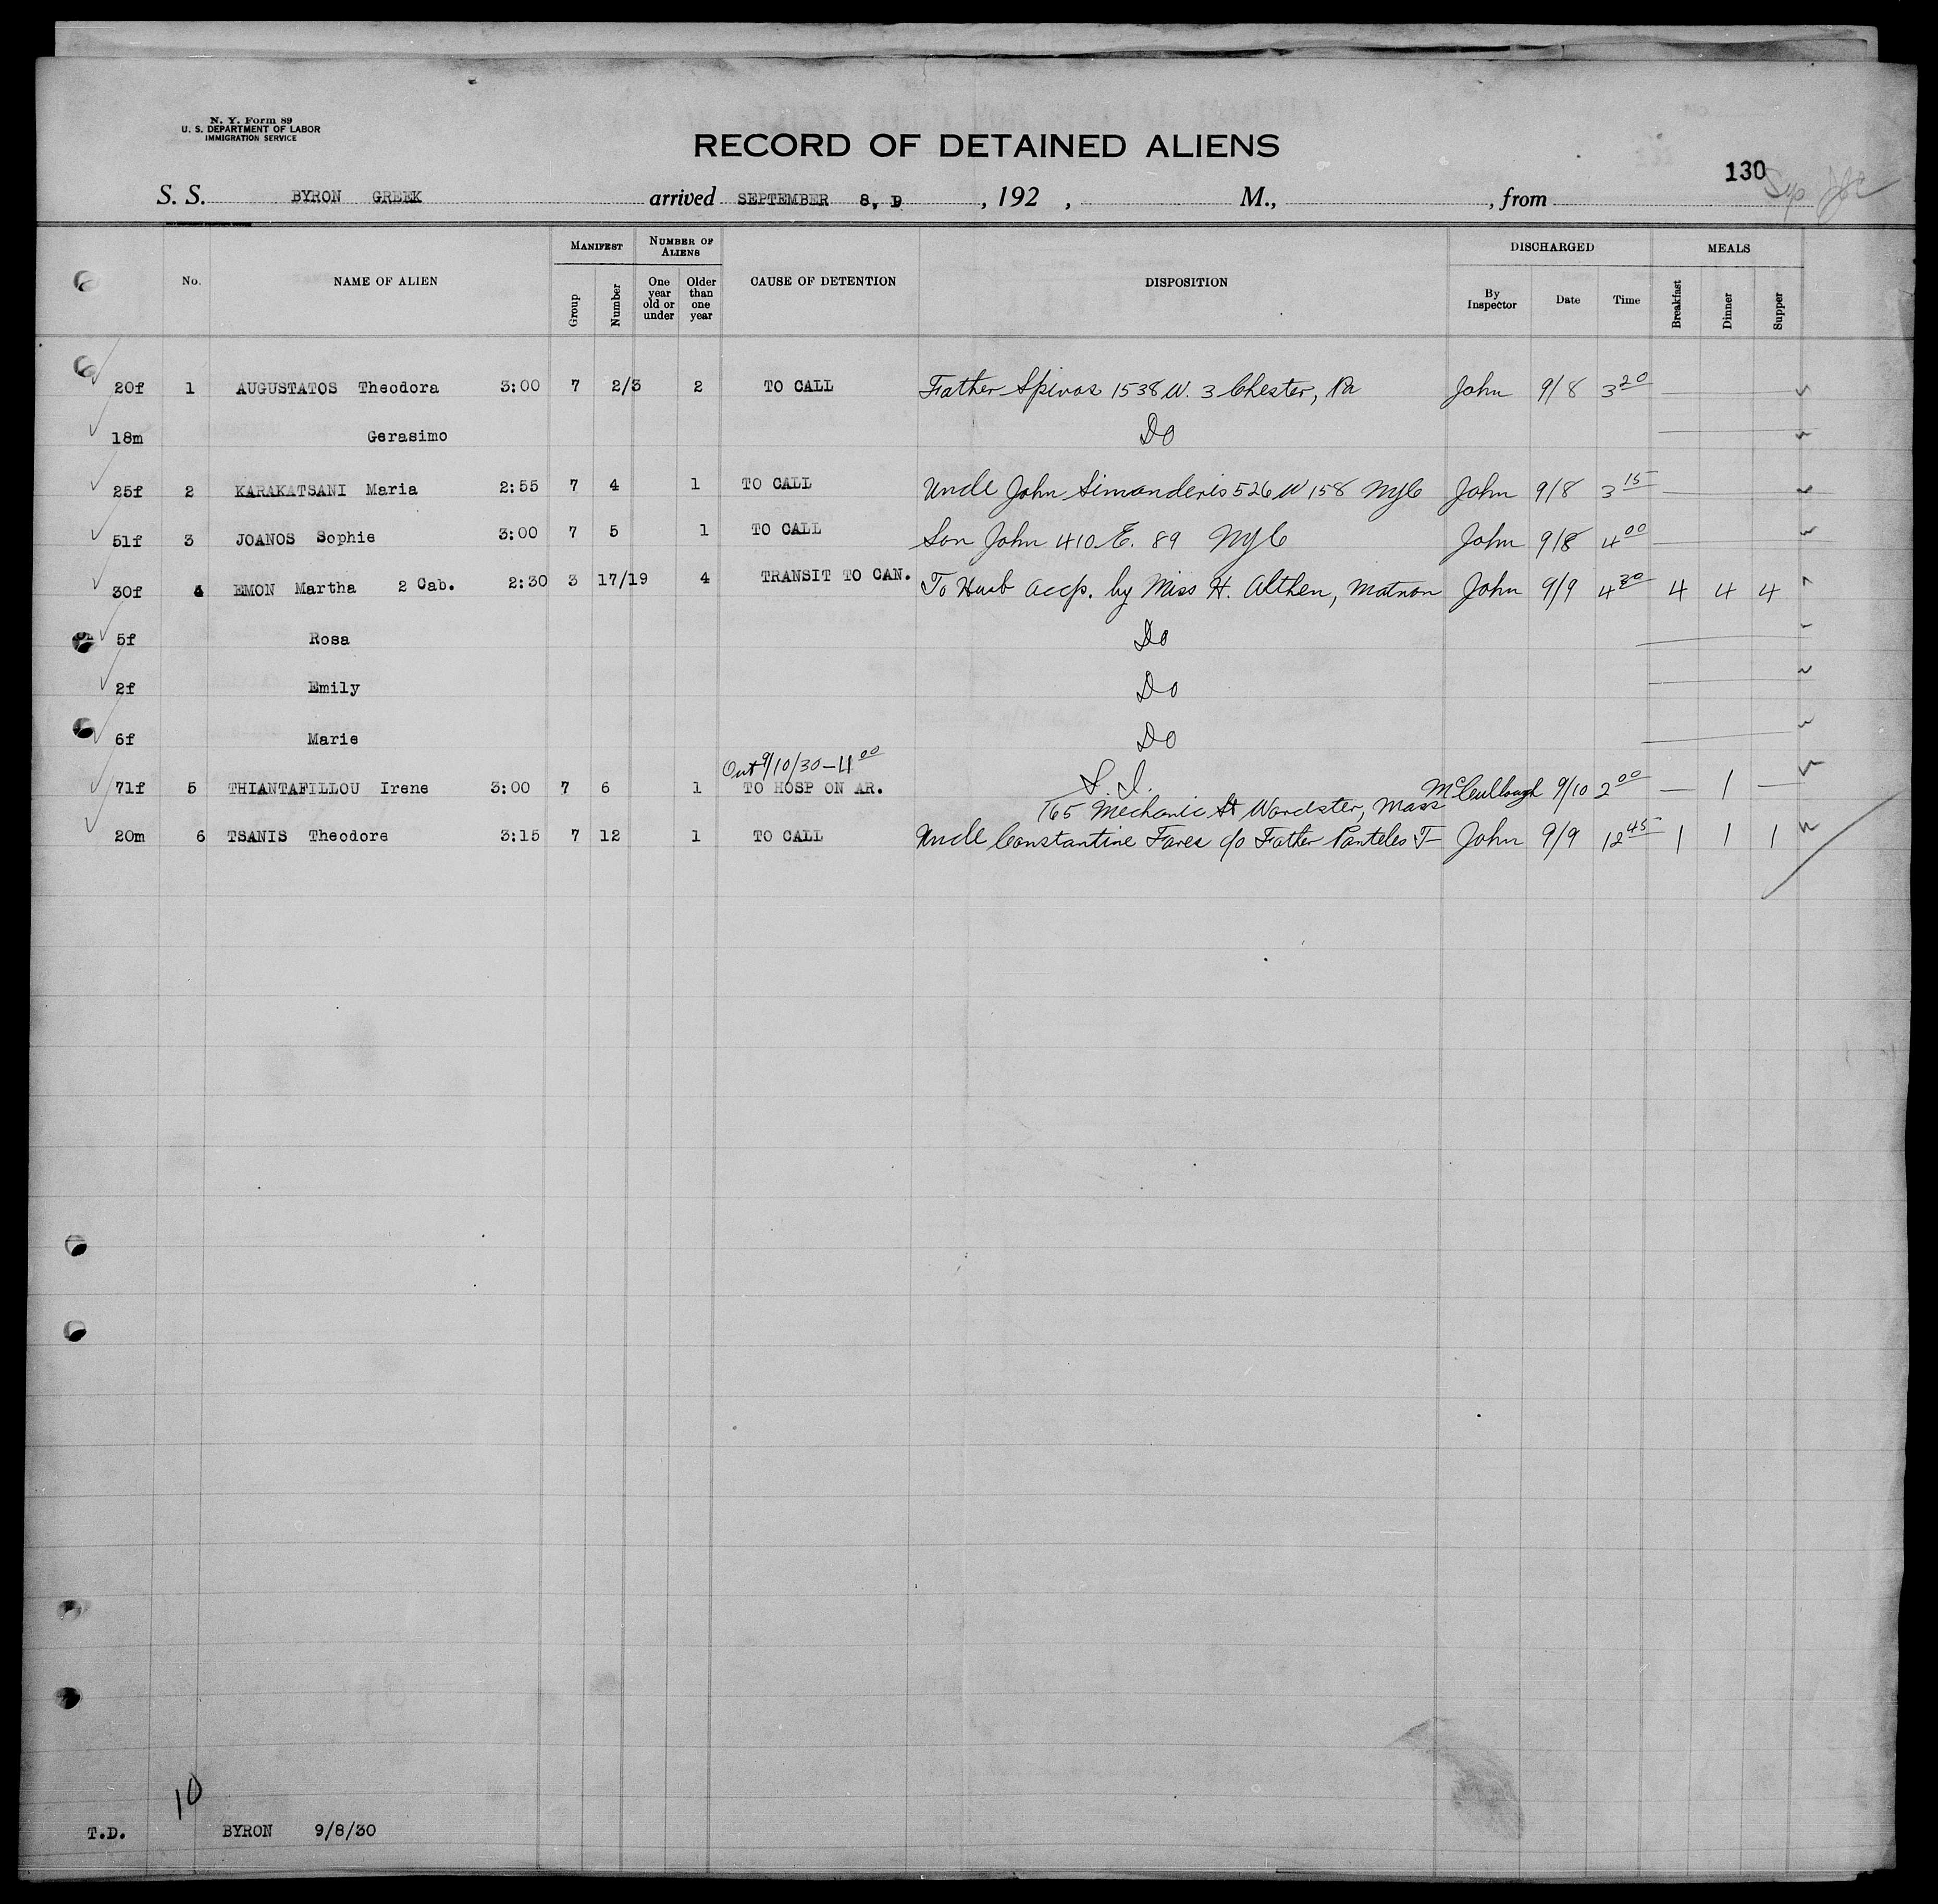 N. Y. Form 89
U. S. DEPARTMENT OF LABOR
IMMIGRATION SERVICE
RECORD OF DETAINED ALIENS
130
S. S. BYRON GREEK arrived SEPTEMBER 8, , 192 , M., , from
No. NAME OF ALIEN MANIFEST Group Number NUMBER OF ALIENS One year old or under Older than one year CAUSE OF DETENTION DISPOSITION DISCHARGED By Inspector Date Time MEALS Breakfast Dinner Supper
20f 1 AUGUSTATOS Theodora 3:00 7 2/3 2 TO CALL Father Spiros 1538 W. 3 Chester, Pa John 9/8 3 20
18m Gerasimo Do
25f 2 KARAKATSANI Maria 2:55 7 4 1 TO CALL Uncle John Simanderis 526 W 158 NYC John 9/8 3 15
51f 3 JOANOS Sophie 3:00 7 5 1 TO CALL Son John 410 E. 89 NYC John 9/8 4 00
30f 4 EMON Martha 2 Cab. 2:30 3 17/19 4 TRANSIT TO CAN. To Husb accp. by Miss H. Althen, Matron John 9/9 4 30 4 4 4
5f Rosa Do
2f Emily Do
6f Marie Do
Out 9/10/30 - 11 00
71f 5 THIANTAFILLOU Irene 3:00 7 6 1 TO HOSP ON AR. S. I. McCullough 9/10 2 00 — 1 —
165 Mechanic St Worcester, Mass
20m 6 TSANIS Theodore 3:15 7 12 1 TO CALL Uncle Constantine Fares c/o Father Panteles T- John 9/9 12 45 1 1 1
10
T.D. BYRON 9/8/30